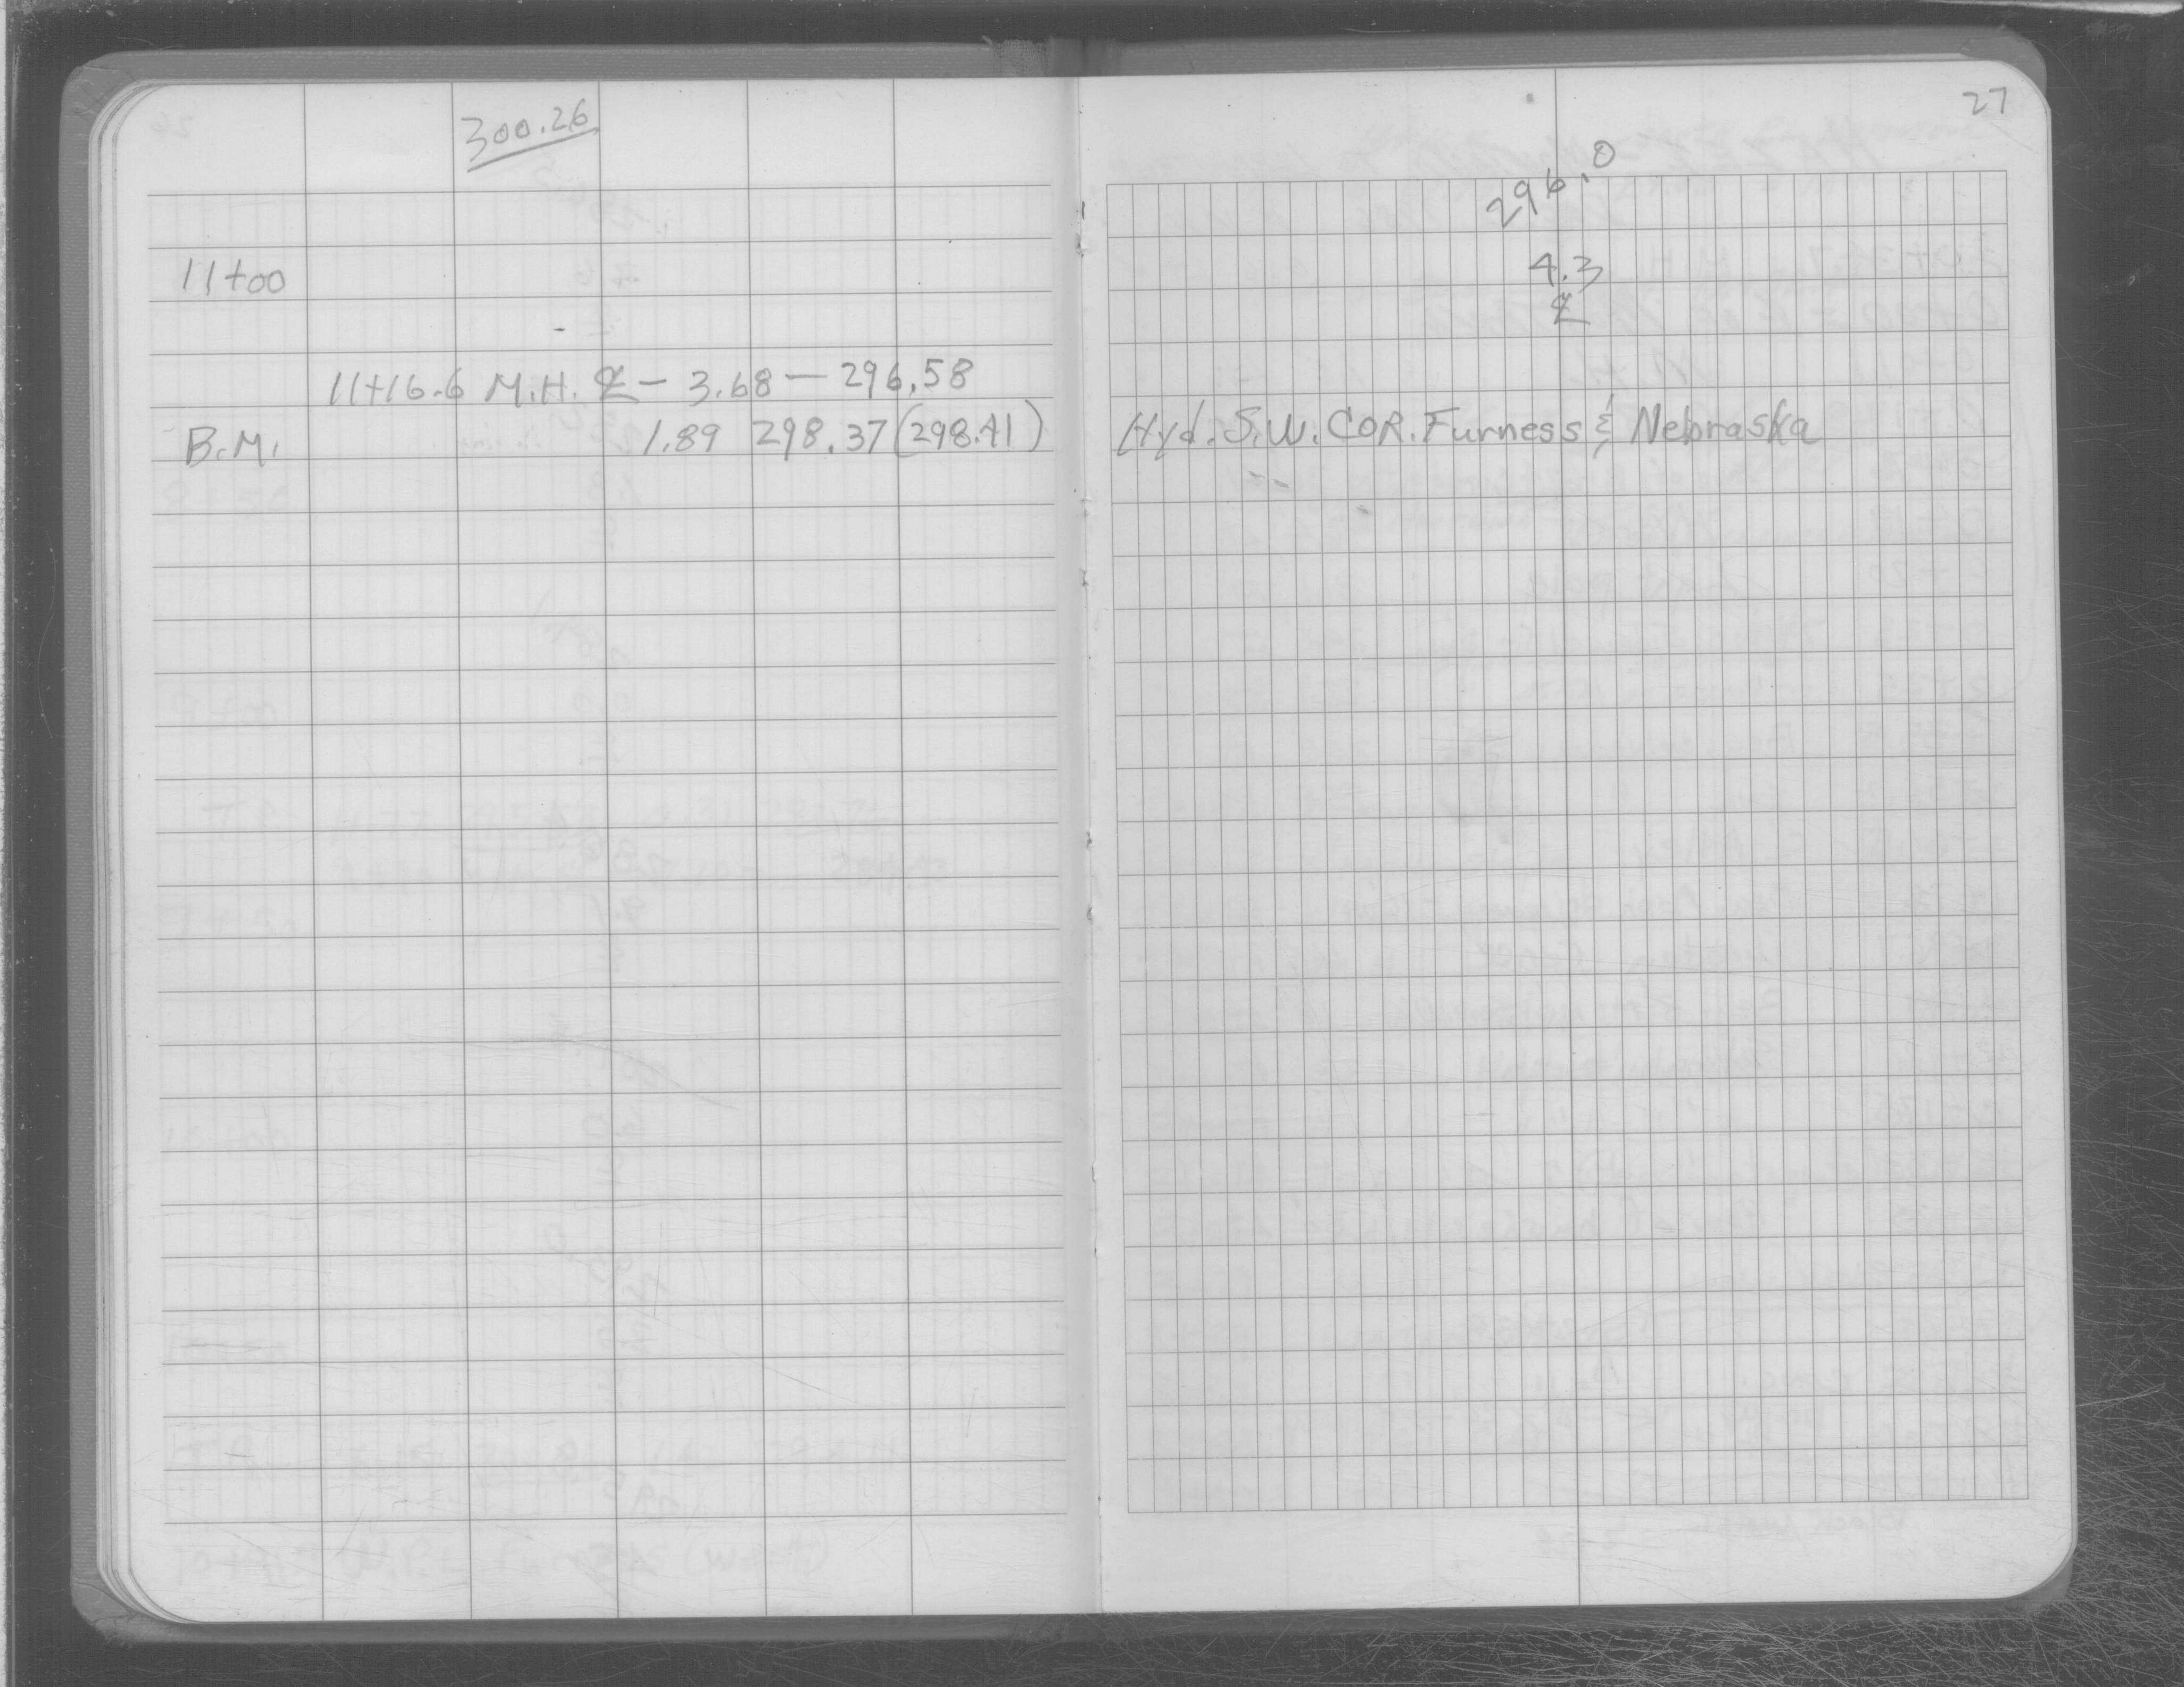 300.26
27
296.0
11+00
4.3
℄
11+16.6 M.H. ℄ - 3.68 - 296.58
B.M. 1.89 298.37 (298.41) Hyd. S.W. COR. Furness & Nebraska